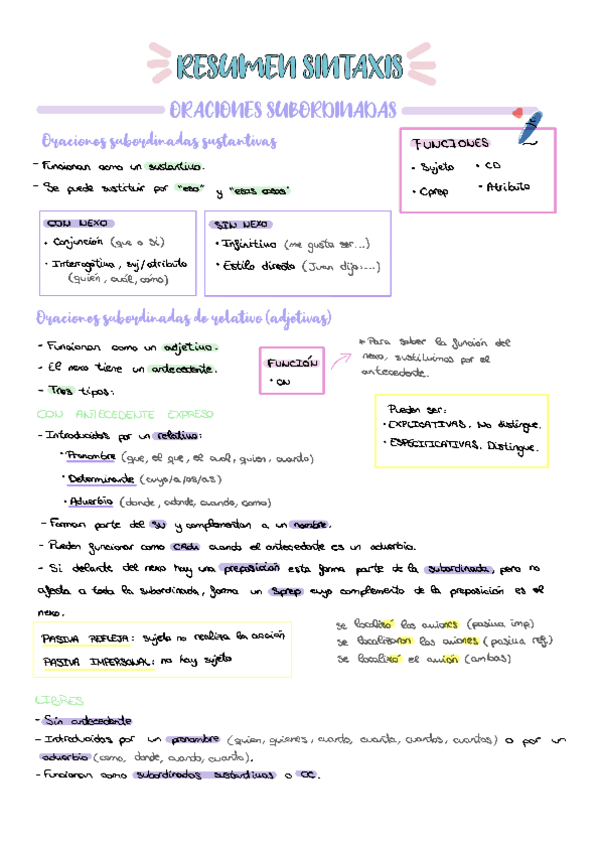 RESUMEN SINTAXIS
ORACIONES SUBORDINADAS
Oraciones subordinadas sustantivas
- Funcionan como un sustantivo.
- Se puede sustituir por "eso" y "esas cosas"
FUNCIONES
• Sujeto • CD
• Cprep • Atributo
CON NEXO
• Conjunción (que o si)
• Interrogativa, suj/atributo
(quién, cuál, cómo)
SIN NEXO
• Infinitivo (me gusta ser...)
• Estilo directo (Juan dijo:...)
Oraciones subordinadas de relativo (adjetivas)
- Funcionan como un adjetivo.
- El nexo tiene un antecedente.
- Tres tipos:
FUNCIÓN
• CN
* Para saber la función del
nexo, sustituimos por el
antecedente.
CON ANTECEDENTE EXPRESO
- Introducidas por un relativo:
• Pronombre (que, el que, el cual, quien, cuanto)
• Determinante (cuyo/a/os/as)
• Adverbio (donde, adonde, cuando, como)
Pueden ser:
• EXPLICATIVAS. No distingue.
• ESPECIFICATIVAS. Distingue.
- Forman parte del SN y complementan a un nombre.
- Pueden funcionar como CAdv cuando el antecedente es un adverbio.
- Si delante del nexo hay una preposición esta forma parte de la subordinada, pero no
afecta a toda la subordinada, forma un Sprep cuyo complemento de la preposición es el
nexo.
PASIVA REFLEJA: sujeto no realiza la acción
PASIVA IMPERSONAL: no hay sujeto
se localizó los aviones (pasiva imp)
se localizaron los aviones (pasiva ref)
se localizó el avión (ambas)
LIBRES
- Sin antecedente
- Introducidas por un pronombre (quien, quienes, cuanto, cuanta, cuantos, cuantas) o por un
adverbio (como, donde, cuando, cuanto).
- Funcionan como subordinadas sustantivas o CC.